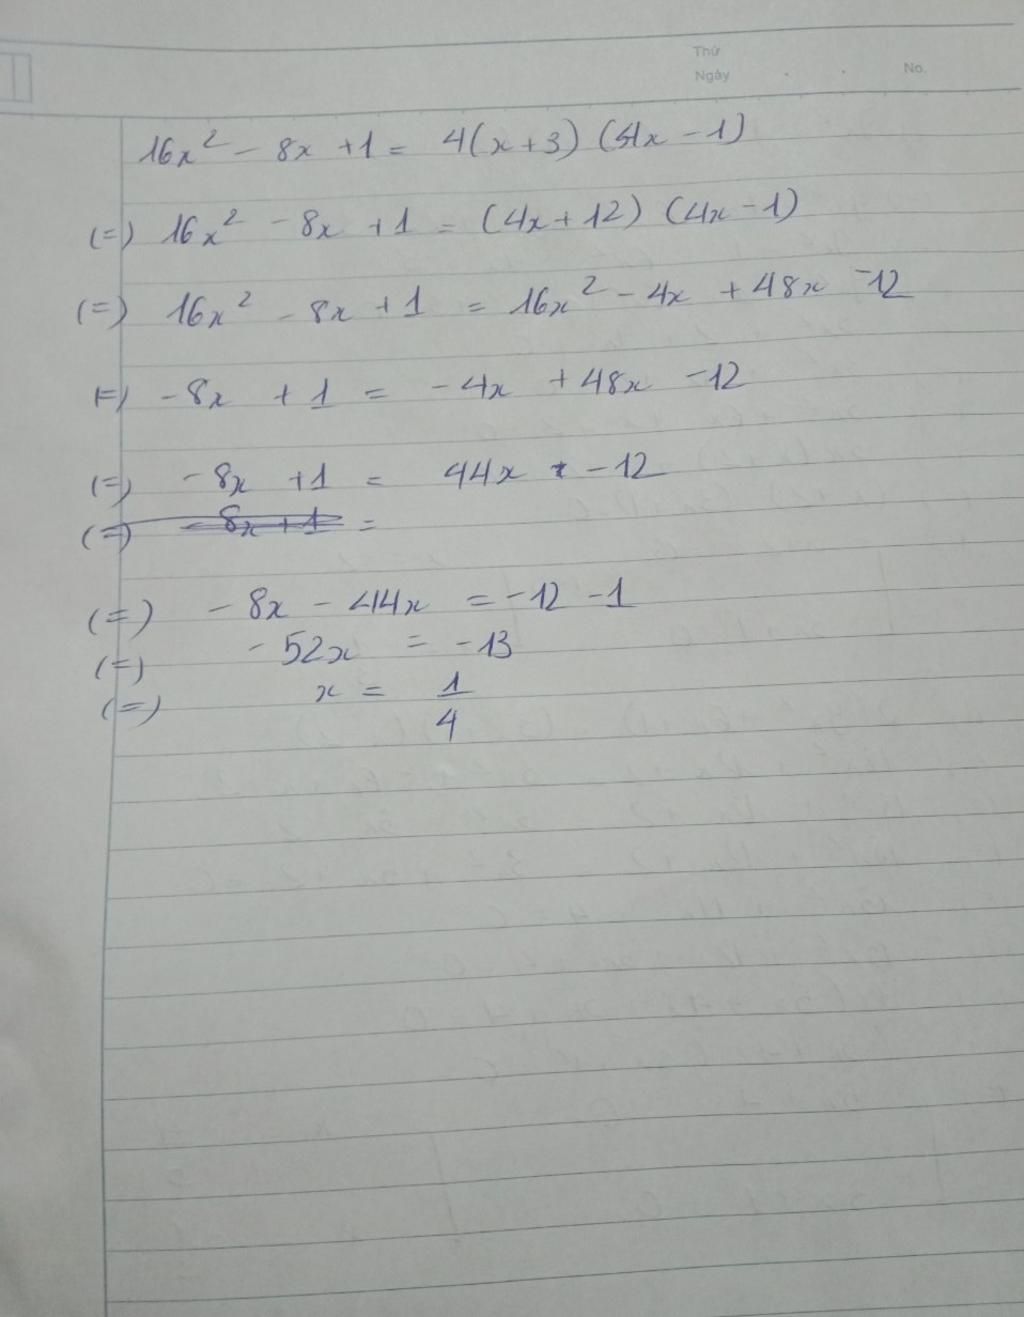 Thứ
Ngày . . No.
16x² - 8x + 1 = 4(x+3) (4x - 1)
(=) 16x² - 8x + 1 = (4x + 12) (4x - 1)
(=) 16x² - 8x + 1 = 16x² - 4x + 48x - 12
(=) - 8x + 1 = - 4x + 48x - 12
(=) - 8x + 1 = 44x - 12
(=) - 8x + 1 =
(=) - 8x - 44x = - 12 - 1
(=) - 52x = - 13
(=) x = 1/4